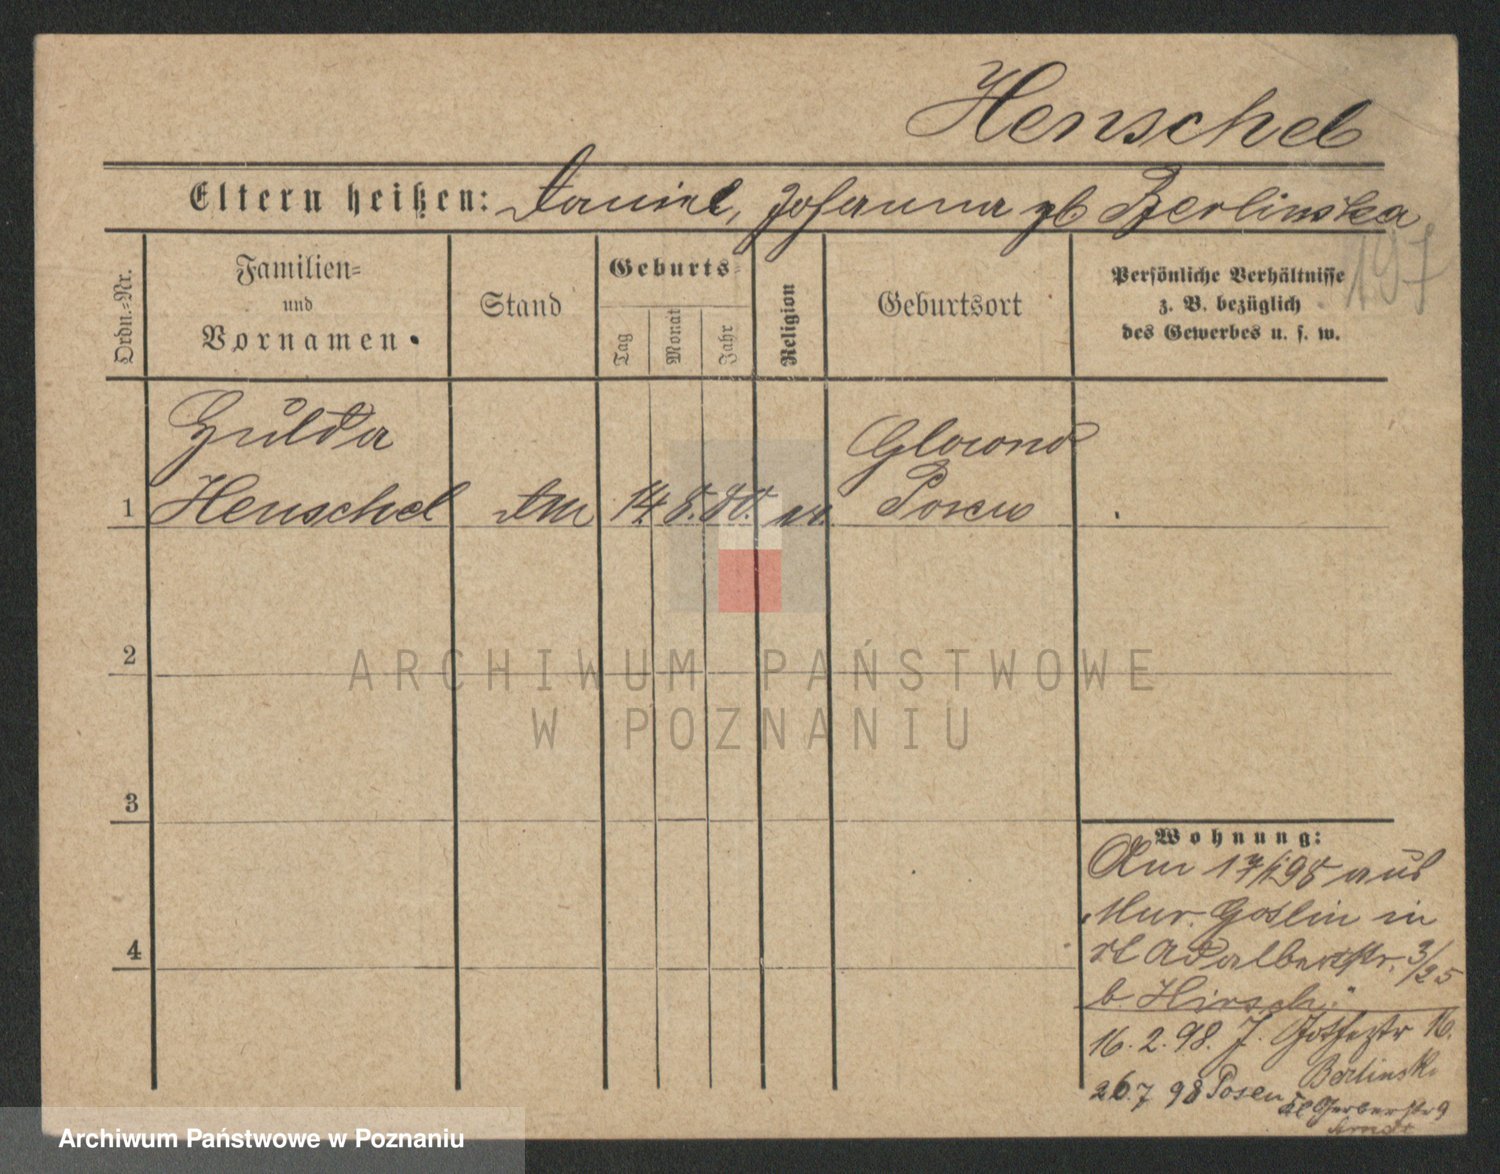 Henschel
Eltern heißen: Daniel, Johanna gb Berlinska
197
Ordn.=Nr.
Familien=
und
Vornamen.
Stand
Geburts=
Tag
Monat
Jahr
Religion
Geburtsort
Persönliche Verhältnisse
z. B. bezüglich
des Gewerbes u. s. w.
Hulda
Glowno
1 Henschel 14. 8. 80. Posen
2
ARCHIWUM PAŃSTWOWE
W POZNANIU
3
4
Wohnung:
Am 17/1 98 aus
Mur. Goslin in
Adalbertstr. 3/25
b. Hirsch.
16. 2. 98. J. 16.
Berlinsk.
26. 7 98 Posen
Kl Gerberstr 9
Archiwum Państwowe w Poznaniu